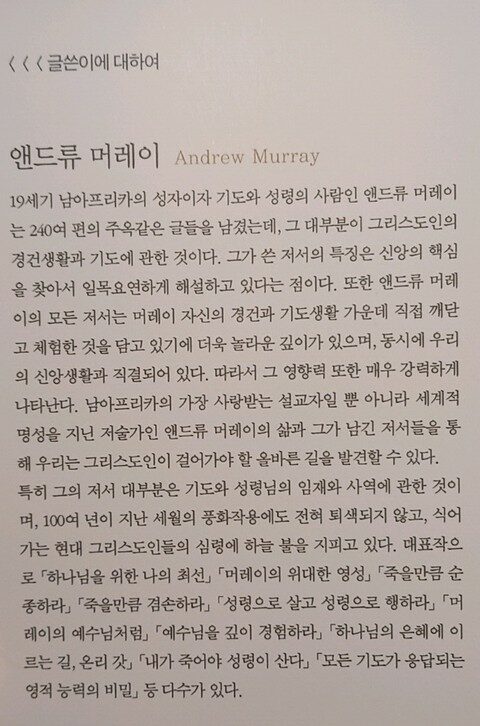 < < < 글쓴이에 대하여
앤드류 머레이 Andrew Murray
19세기 남아프리카의 성자이자 기도와 성령의 사람인 앤드류 머레이
는 240여 편의 주옥같은 글들을 남겼는데, 그 대부분이 그리스도인의
경건생활과 기도에 관한 것이다. 그가 쓴 저서의 특징은 신앙의 핵심
을 찾아서 일목요연하게 해설하고 있다는 점이다. 또한 앤드류 머레
이의 모든 저서는 머레이 자신의 경건과 기도생활 가운데 직접 깨닫
고 체험한 것을 담고 있기에 더욱 놀라운 깊이가 있으며, 동시에 우리
의 신앙생활과 직결되어 있다. 따라서 그 영향력 또한 매우 강력하게
나타난다. 남아프리카의 가장 사랑받는 설교자일 뿐 아니라 세계적
명성을 지닌 저술가인 앤드류 머레이의 삶과 그가 남긴 저서들을 통
해 우리는 그리스도인이 걸어가야 할 올바른 길을 발견할 수 있다.
특히 그의 저서 대부분은 기도와 성령님의 임재와 사역에 관한 것이
며, 100여 년이 지난 세월의 풍화작용에도 전혀 퇴색되지 않고, 식어
가는 현대 그리스도인들의 심령에 하늘 불을 지피고 있다. 대표작으
로 「하나님을 위한 나의 최선」 「머레이의 위대한 영성」 「죽을만큼 순
종하라」 「죽을만큼 겸손하라」 「성령으로 살고 성령으로 행하라」 「머
레이의 예수님처럼」 「예수님을 깊이 경험하라」 「하나님의 은혜에 이
르는 길, 온리 갓」 「내가 죽어야 성령이 산다」 「모든 기도가 응답되는
영적 능력의 비밀」 등 다수가 있다.